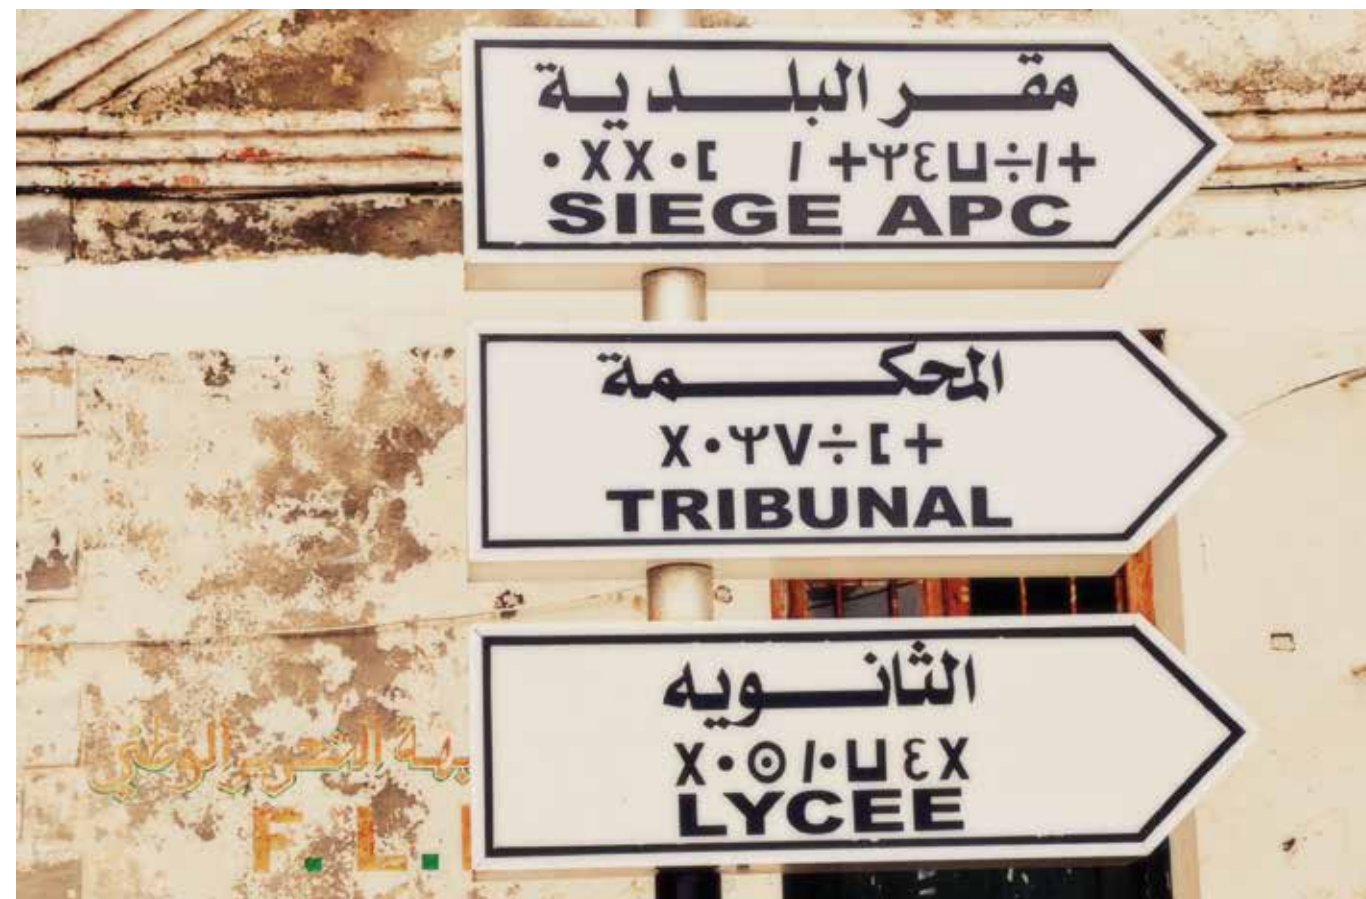 مقر البلدية
ⴰⵅⵅⴰⵎ ⵏ ⵜⵖⵉⵡⴻⵏⵜ
SIEGE APC
المحكمة
ⵝⴰⵖⴷⴻⵎⵜ
TRIBUNAL
الثانويه
ⵝⴰⵙⵏⴰⵡⵉⵝ
LYCEE
التحرير الوطني
F. L.